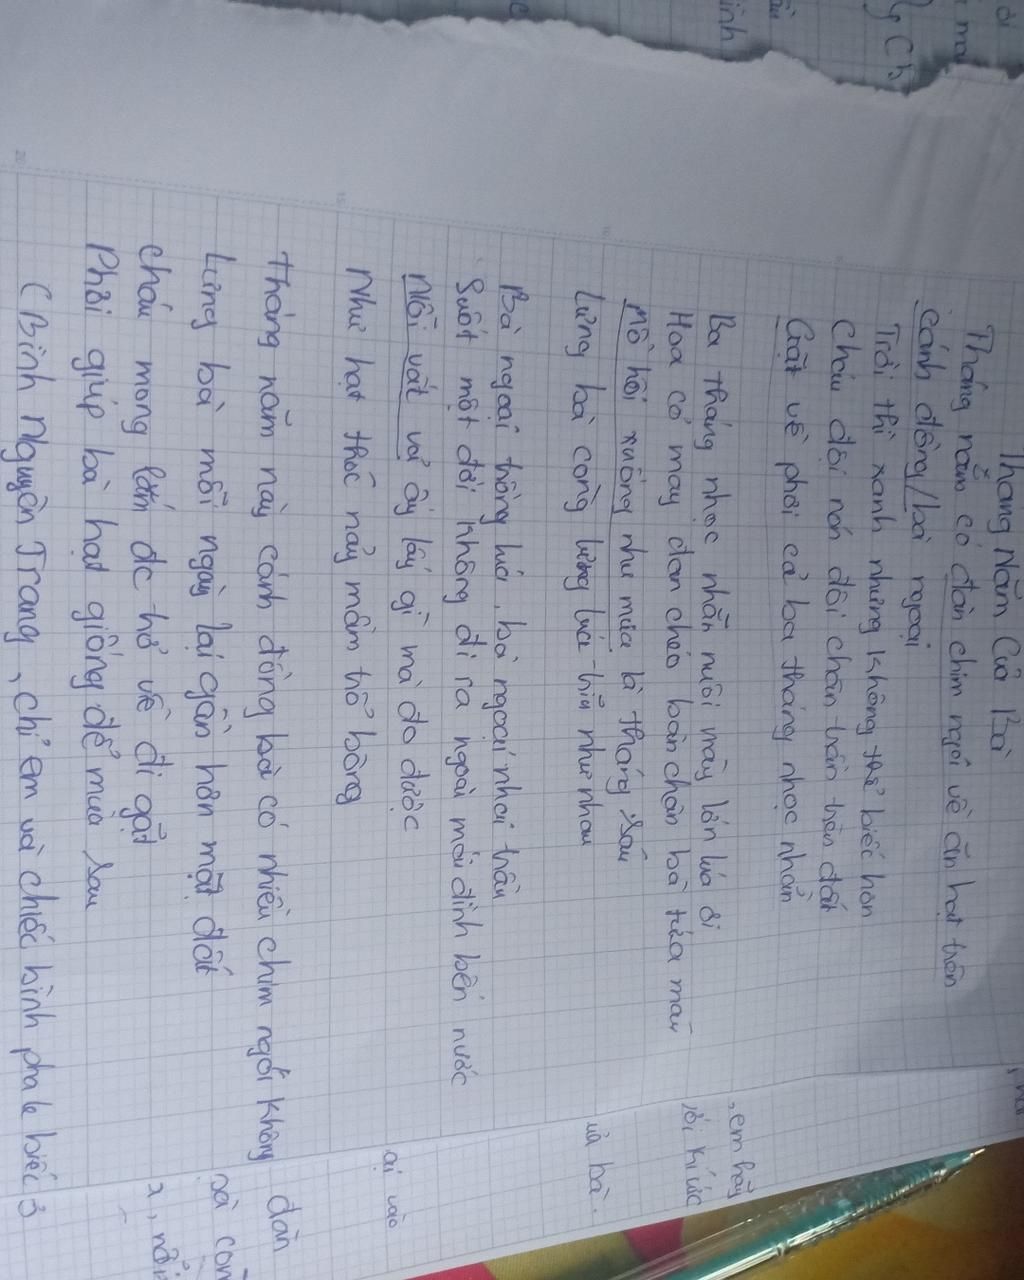 Tháng Năm Của Bà
Tháng năm có đàn chim ngói về ăn hạt trên
cánh đồng/bà ngoại
Trời thì xanh nhưng không thể biếc hơn
Cháu đội nón đôi chân trần trên đất
Gặt về phơi cả ba tháng nhọc nhằn
Ba tháng nhọc nhằn nuôi mấy lứa
Hoa cỏ may đan chéo bàn chân bà tứa máu
Mồ hôi xuống như mưa là tháng sáu
Lưng bà còng lưng lúa trĩu như nhau
Bà ngoại trồng lúa, bà ngoại nhoi trầu
Suốt một đời không đi ra ngoài mái đình bến nước
Nỗi vất vả ấy lấy gì mà đo được
Như hạt thóc nảy mầm trổ bông
Tháng năm này cánh đồng bà có nhiều chim ngói không
Lưng bà mỗi ngày lại gần hơn mặt đất
cháu mong lắm đc hở về đi gặt
Phơi giúp bà hạt giống để mùa sau
(Bình Nguyên Trang, chỉ em và chiếc bình pha lê biếc
em hãy
kí ức
và bà.
ại vào
đàn